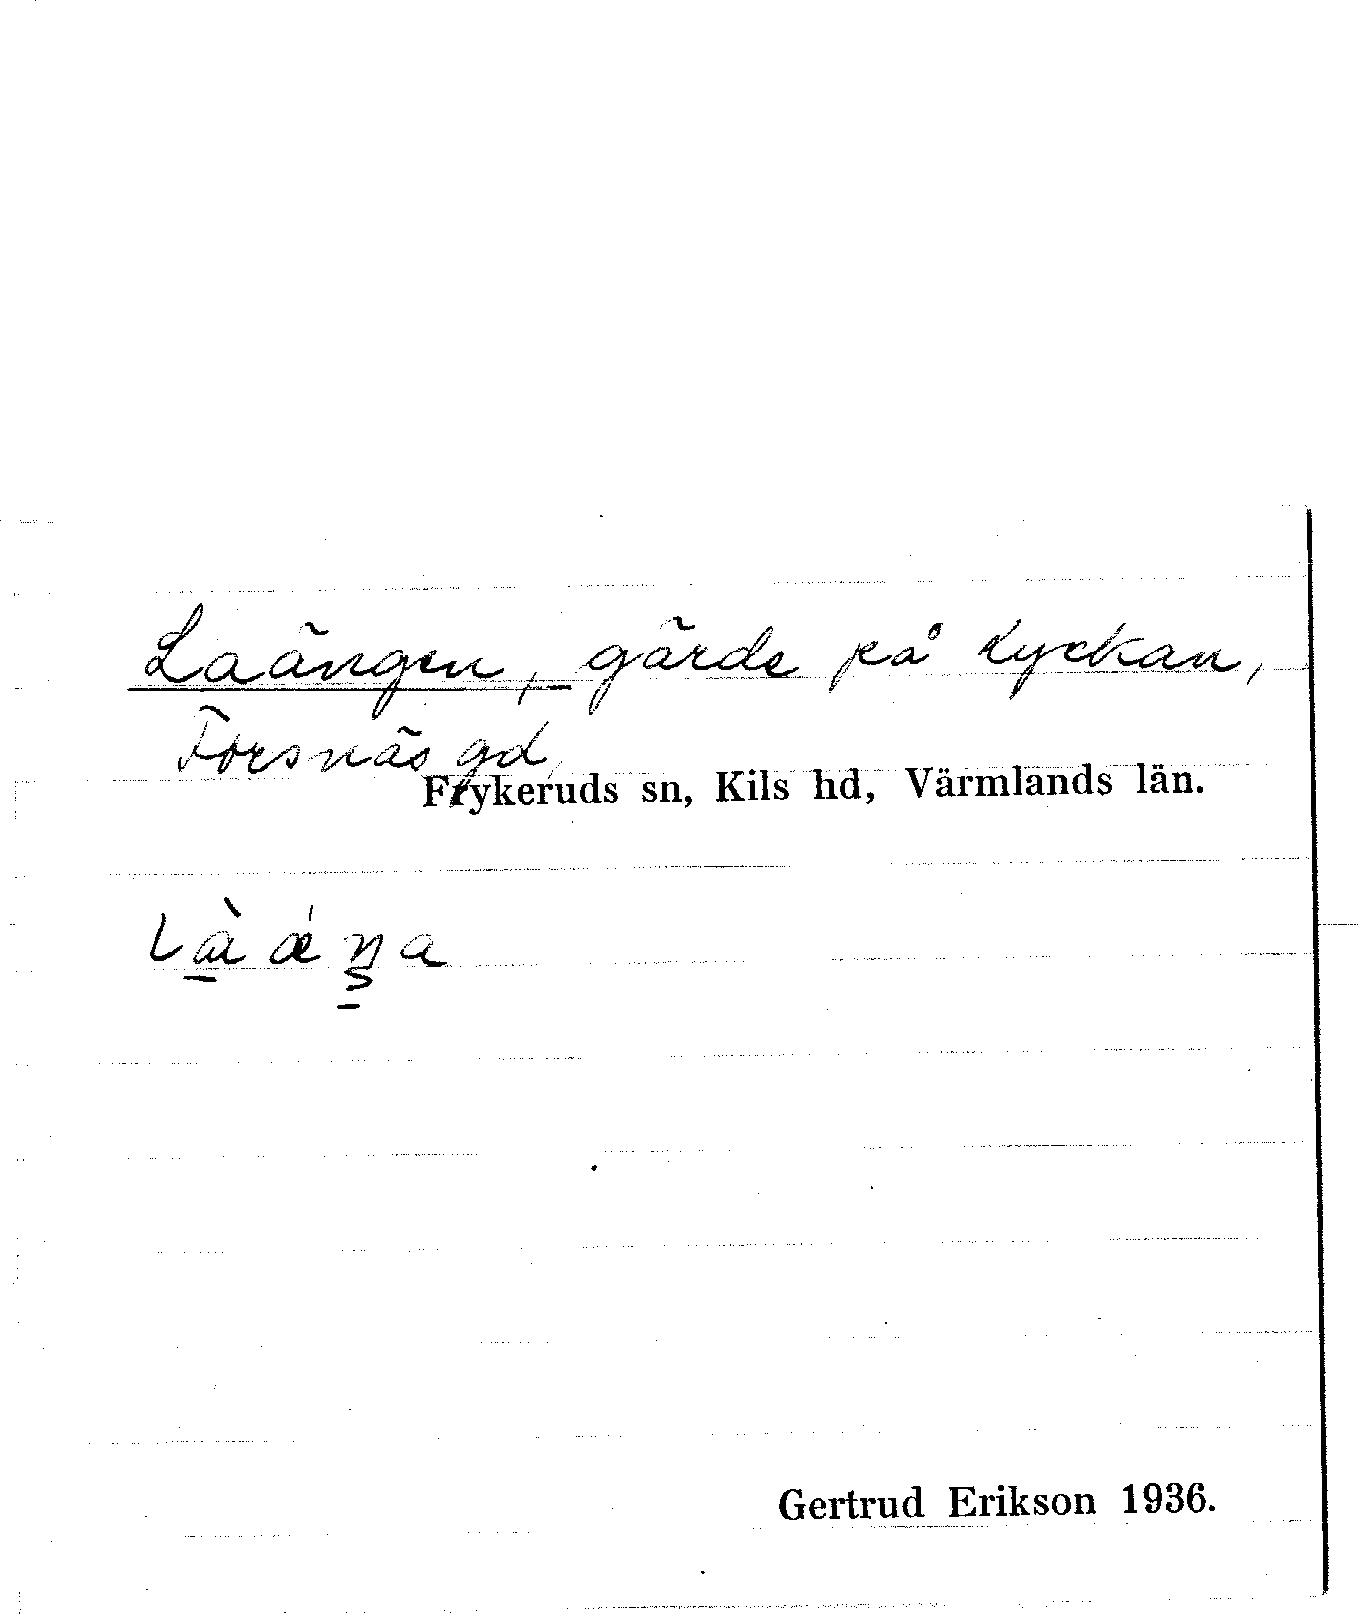 Laängen, gärde på Lyckan,
Forsnäs gd,
Frykeruds sn, Kils hd, Värmlands län.
Gertrud Erikson 1936.